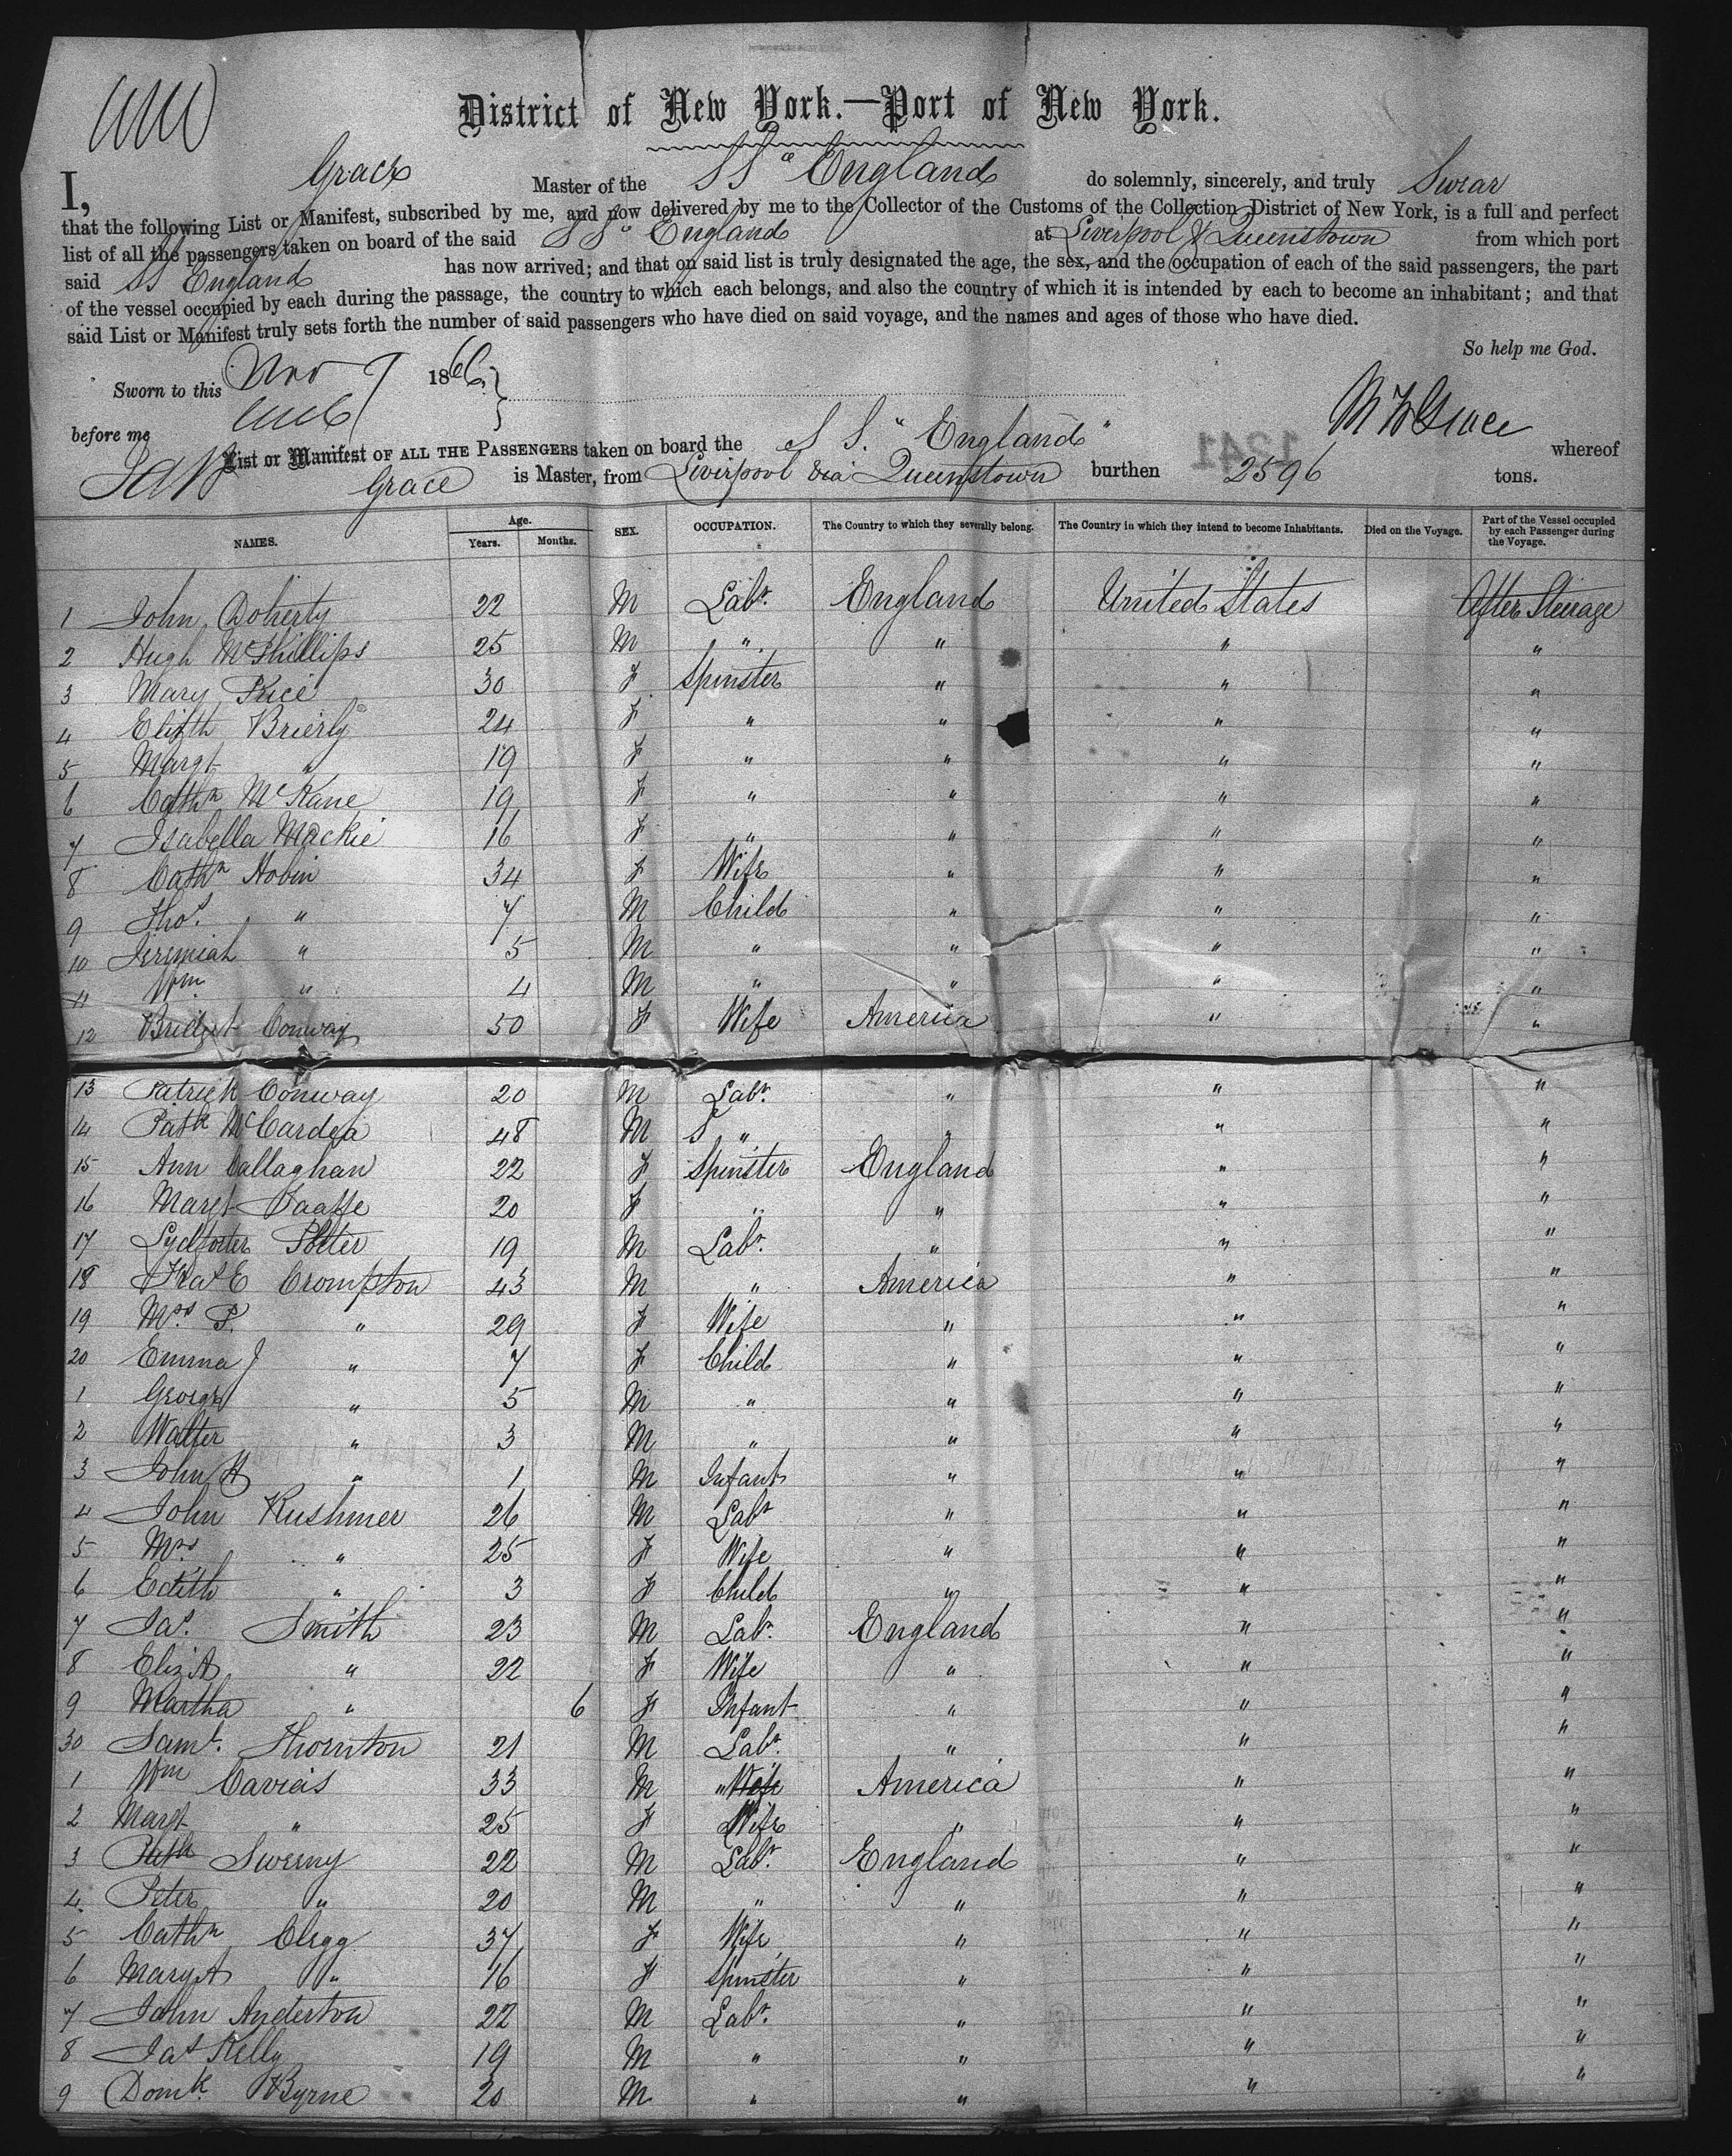 District of New York.—Port of New York.
I, Grace Master of the SS "England do solemnly, sincerely, and truly Swear
that the following List or Manifest, subscribed by me, and now delivered by me to the Collector of the Customs of the Collection District of New York, is a full and perfect
list of all the passengers taken on board of the said SS "England at Liverpool & Queenstown from which port
said SS England has now arrived; and that on said list is truly designated the age, the sex, and the occupation of each of the said passengers, the part
of the vessel occupied by each during the passage, the country to which each belongs, and also the country of which it is intended by each to become an inhabitant; and that
said List or Manifest truly sets forth the number of said passengers who have died on said voyage, and the names and ages of those who have died.
So help me God.
Sworn to this Nov 7 1866
before me
List or Manifest OF ALL THE PASSENGERS taken on board the SS. "England" whereof
Grace is Master, from Liverpool via Queenstown burthen 2596 tons.
1241
NAMES. Age. Years. Months. SEX. OCCUPATION. The Country to which they severally belong. The Country in which they intend to become Inhabitants. Died on the Voyage. Part of the Vessel occupied by each Passenger during the Voyage.
1 John Doherty 22 M Labr. England United States After Steerage
2 Hugh McPhillips 25 M " " " "
3 Mary Rice 30 F Spinster " " "
4 Elizth Brierly 24 F " " " "
5 Margt " 19 F " " " "
6 Cathn McKane 19 F " " " "
7 Isabella Mackie 16 F " " " "
8 Cathn Hobin 34 F Wife " " "
9 Thos. " 7 M Child " " "
10 Jeremiah " 5 M " " " "
11 Wm " 4 M " " " "
12 Bridget Conway 50 F Wife America " "
13 Patrick Conway 20 M Labr. " " "
14 Patk McCardea 48 M " " " "
15 Ann Callaghan 22 F Spinster England " "
16 Margt 20 F " " " "
17 Potter 19 M Labr. " " "
18 Crompton 43 M " America " "
19 Mrs. P. " 29 F Wife " " "
20 Emma J " 7 F Child " " "
1 George " 5 M " " " "
2 Walter " 3 M " " " "
3 John H " 1 M Infant " " "
4 John Rushmer 26 M Labr " " "
5 Mrs " 25 F Wife " " "
6 Edith " 3 F Child " " "
7 Jas. Smith 23 M Labr. England " "
8 Eliz A " 22 F Wife " " "
9 Martha " 6 F Infant " " "
30 Saml. Thornton 21 M Labr. " " "
1 Wm Caveis 33 M " America " "
2 Margt " 25 F Wife " " "
3 Patk Sweeny 22 M Labr. England " "
4 Peter " 20 M " " " "
5 Cathn Clegg 37 F Wife " " "
6 Mary A " 16 F Spinster " " "
7 John Anderton 22 M Labr. " " "
8 Jas Kelly 19 M " " " "
9 Domk. Byrne 20 M " " " "